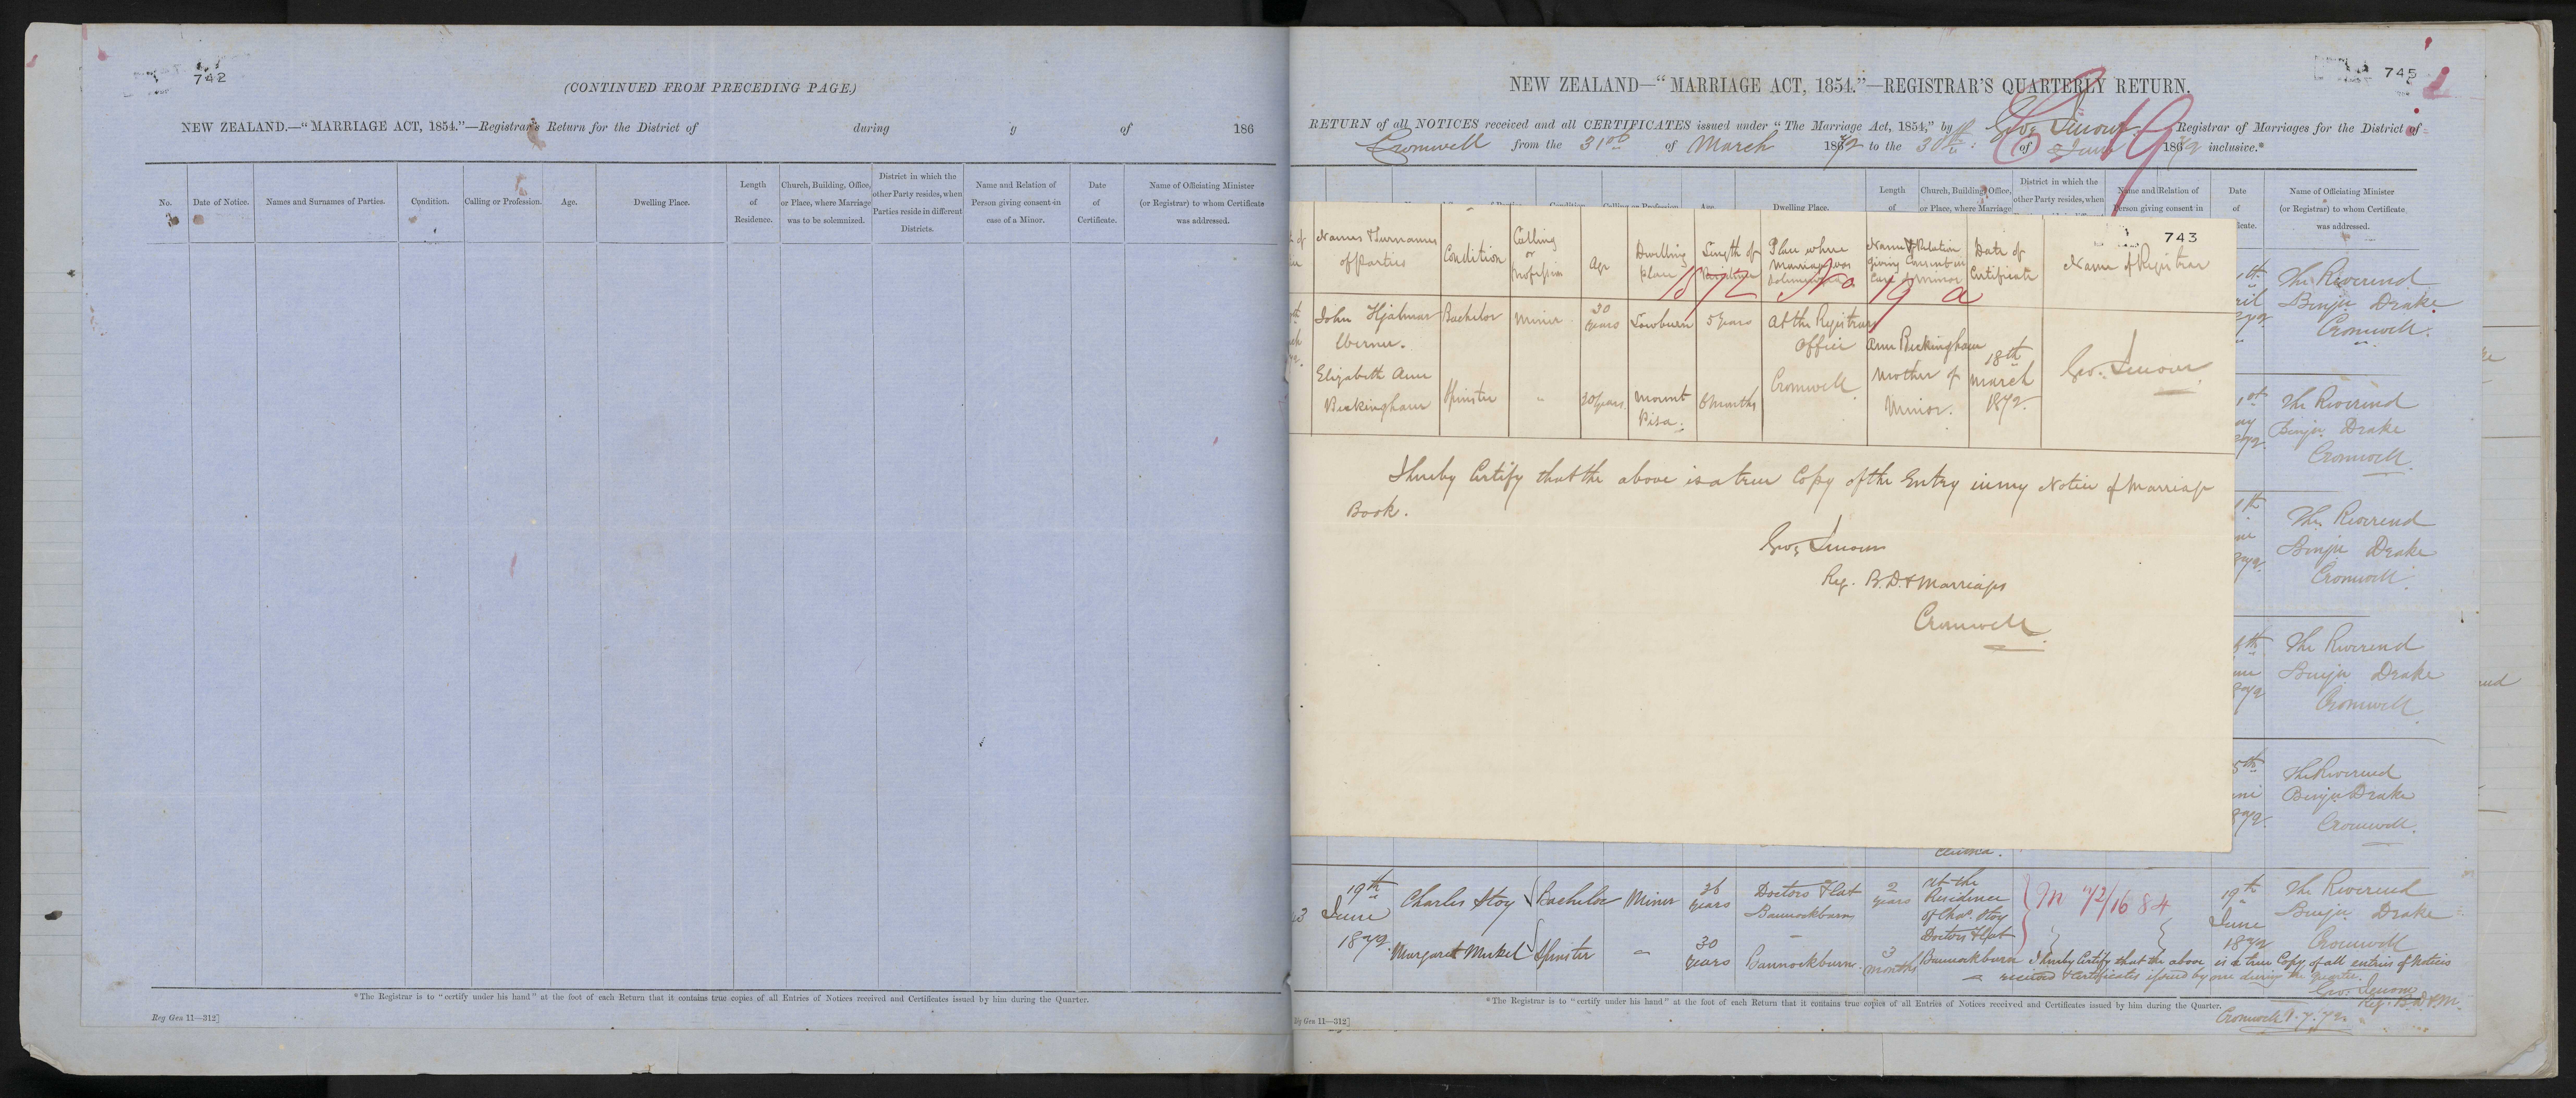 742
(CONTINUED FROM PRECEDING PAGE.)
NEW ZEALAND.—"MARRIAGE ACT, 1854."—Registrar's Return for the District of during of 186
No.
Date of Notice.
Names and Surnames of Parties.
Condition.
Calling or Profession.
Age.
Dwelling Place.
Length
of
Residence.
Church, Building, Office,
or Place, where Marriage
was to be solemnized.
District in which the
other Party resides, when
Parties reside in different
Districts.
Name and Relation of
Person giving consent in
case of a Minor.
Date
of
Certificate.
Name of Officiating Minister
(or Registrar) to whom Certificate
was addressed.
*The Registrar is to "certify under his hand" at the foot of each Return that it contains true copies of all Entries of Notices received and Certificates issued by him during the Quarter.
Reg Gen 11—312]
745
NEW ZEALAND—"MARRIAGE ACT, 1854."—REGISTRAR'S QUARTERLY RETURN.
RETURN of all NOTICES received and all CERTIFICATES issued under "The Marriage Act, 1854," by Geo. Registrar of Marriages for the District of
Cromwell from the 31st of March 1872 to the 30th of June 1872 inclusive.*
Length
of
Church, Building, Office,
or Place, where Marriage
District in which the
other Party resides, when
Name and Relation of
Person giving consent in
Date
of
Name of Officiating Minister
(or Registrar) to whom Certificate
was addressed.
743
Names & Surnames
of Parties
Condition
Calling
or
Profession
Age
Dwelling
Place
Length of
Residence
Place where
Marriage was
Solemnized
Name & Relation
giving Consent in
Case of Minor
Date of
Certificate
Name of Registrar
1872 No 19 a
John Hjalmar
Werner.
Bachelor
Miner
30
years
Lowburn
5 years
At the Registrars
Office
Cromwell
Elizabeth Ann
Buckingham
Spinster
"
20 years
Mount
Pisa.
6 months
Ann Buckingham
Mother of
Minor.
18th
March
1872.
Geo.
I hereby Certify that the above is a true Copy of the Entry in my Notice of Marriage
Book.
Geo.
Reg. B.D. & Marriages
Cromwell
The Reverend
Benjn Drake
Cromwell.
The Reverend
Benjn Drake
Cromwell.
The Reverend
Benjn Drake
Cromwell.
The Reverend
Benjn Drake
Cromwell
The Reverend
Benjn Drake
Cromwell.
19th
June
1872.
Charles Stoy
Bachelor
Miner
36
years
Doctors Flat
Bannockburn
2
years
At the
Residence
of Chas. Stoy
Doctors Flat
Bannockburn
M 72/1684
19th
June
1872
The Reverend
Benjn Drake
Cromwell
Margaret
Spinster
"
30
years
Bannockburn
3
months
I hereby Certify that the above is a true Copy of all entries of Notices
received & Certificates issued by me during the quarter.
Geo.
Reg. B.D.&M.
Cromwell 1.7.72.
*The Registrar is to "certify under his hand" at the foot of each Return that it contains true copies of all Entries of Notices received and Certificates issued by him during the Quarter.
Gen 11—312]